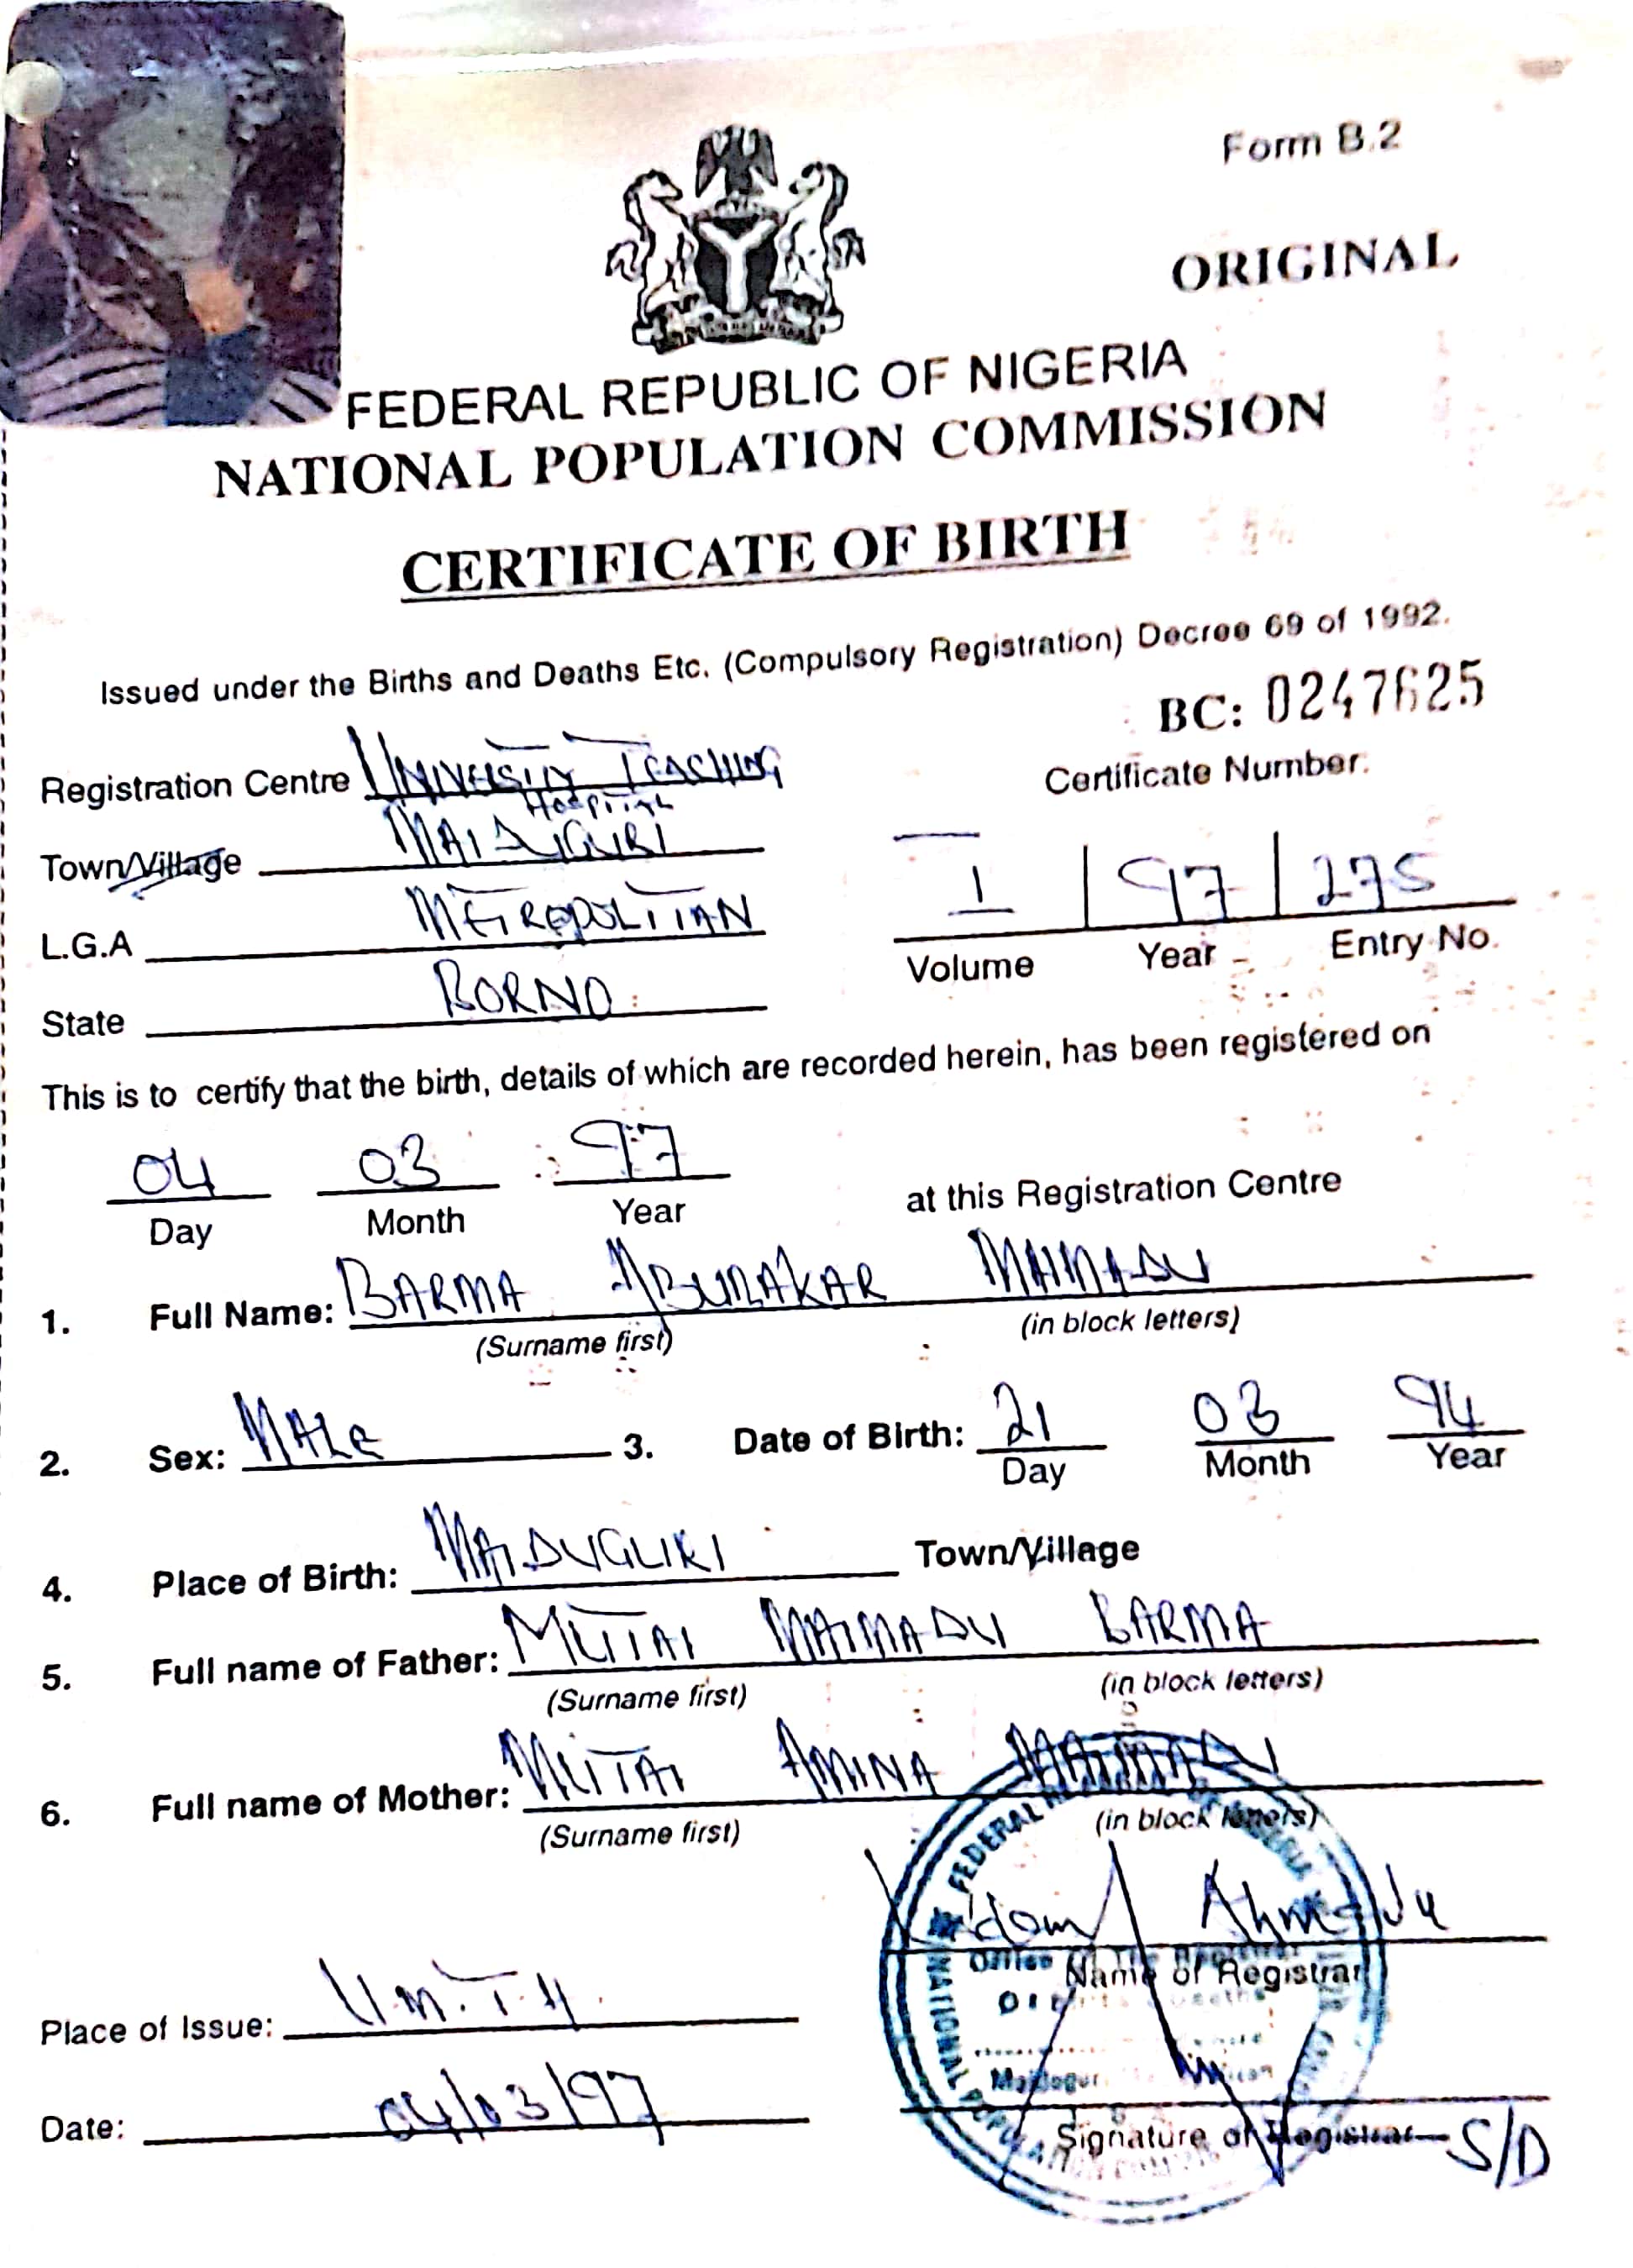 Form B.2
ORIGINAL
FEDERAL REPUBLIC OF NIGERIA
NATIONAL POPULATION COMMISSION
CERTIFICATE OF BIRTH
Issued under the Births and Deaths Etc. (Compulsory Registration) Decree 69 of 1992.
BC: 0247625
Certificate Number.
Registration Centre UNIVERSITY TEACHING
Hospital
Town/Village MAIDUGURI
L.G.A METROPOLITAN
State BORNO
1 | 97 | 275
Volume Year Entry No.
This is to certify that the birth, details of which are recorded herein, has been registered on
04 03 97 at this Registration Centre
Day Month Year
1. Full Name: BARMA ABUBAKAR MAIMADU
(Surname first) (in block letters)
2. Sex: MALE 3. Date of Birth: 21 03 94
Day Month Year
4. Place of Birth: MAIDUGURI Town/Village
5. Full name of Father: MUTAI MAIMADU BARMA
(Surname first) (in block letters)
6. Full name of Mother: MUTAI AMINA MAIMADU
(Surname first) (in block letters)
Adam Ahmadu
Name of Registrar
Place of Issue: U.M.T.H.
Date: 04/03/97
Signature of Registrar S/D